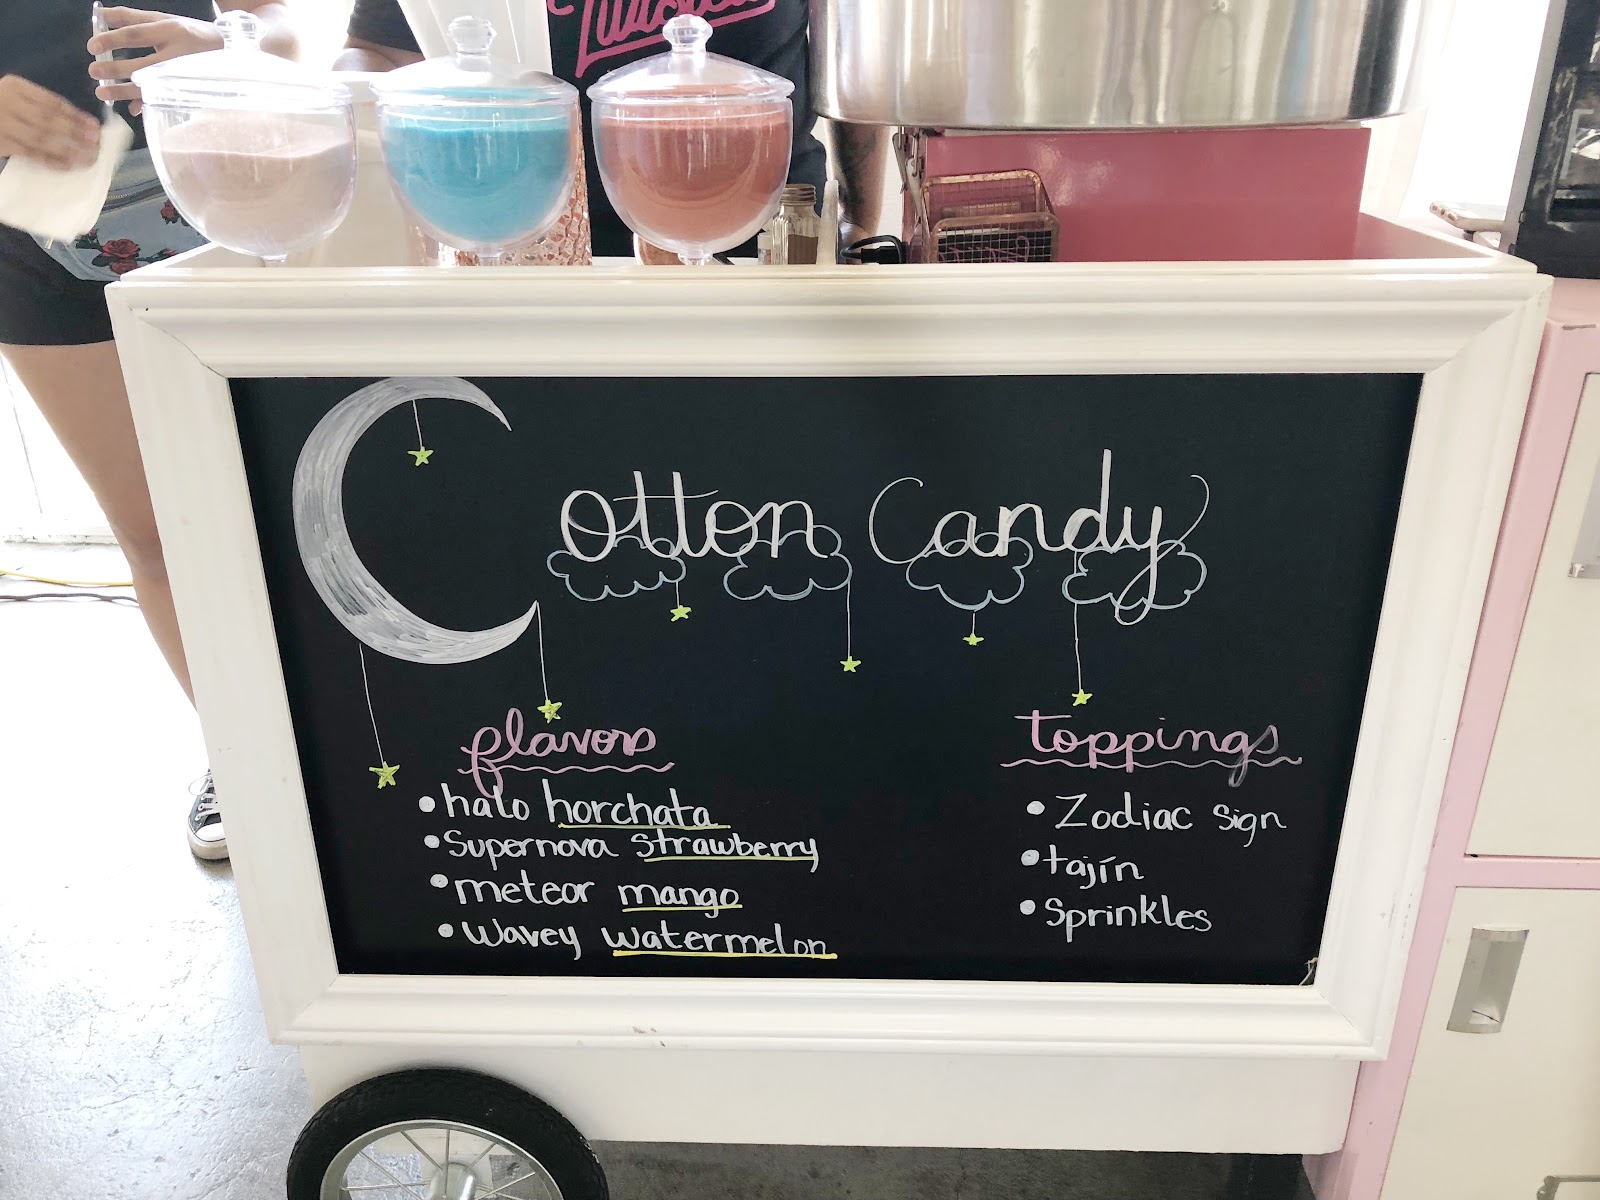 Cotton Candy
flavors
• halo horchata
• Supernova strawberry
• meteor mango
• Wavey watermelon
toppings
• Zodiac sign
• tajín
• Sprinkles